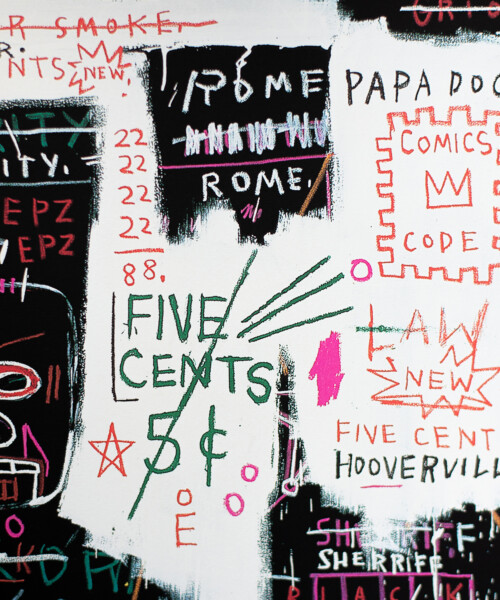 R SMOKE.
R.
NTS NEW.
ITY
ITY.
EPZ
EPZ
22
22
22
22
88.
ROME
ROME.
PAPA DOC
COMICS
CODE
FIVE
CENTS
5¢
LAW
NEW
FIVE CENT
HOOVERVILL
E
SHERRIFF
SHERRIFF
BLACK